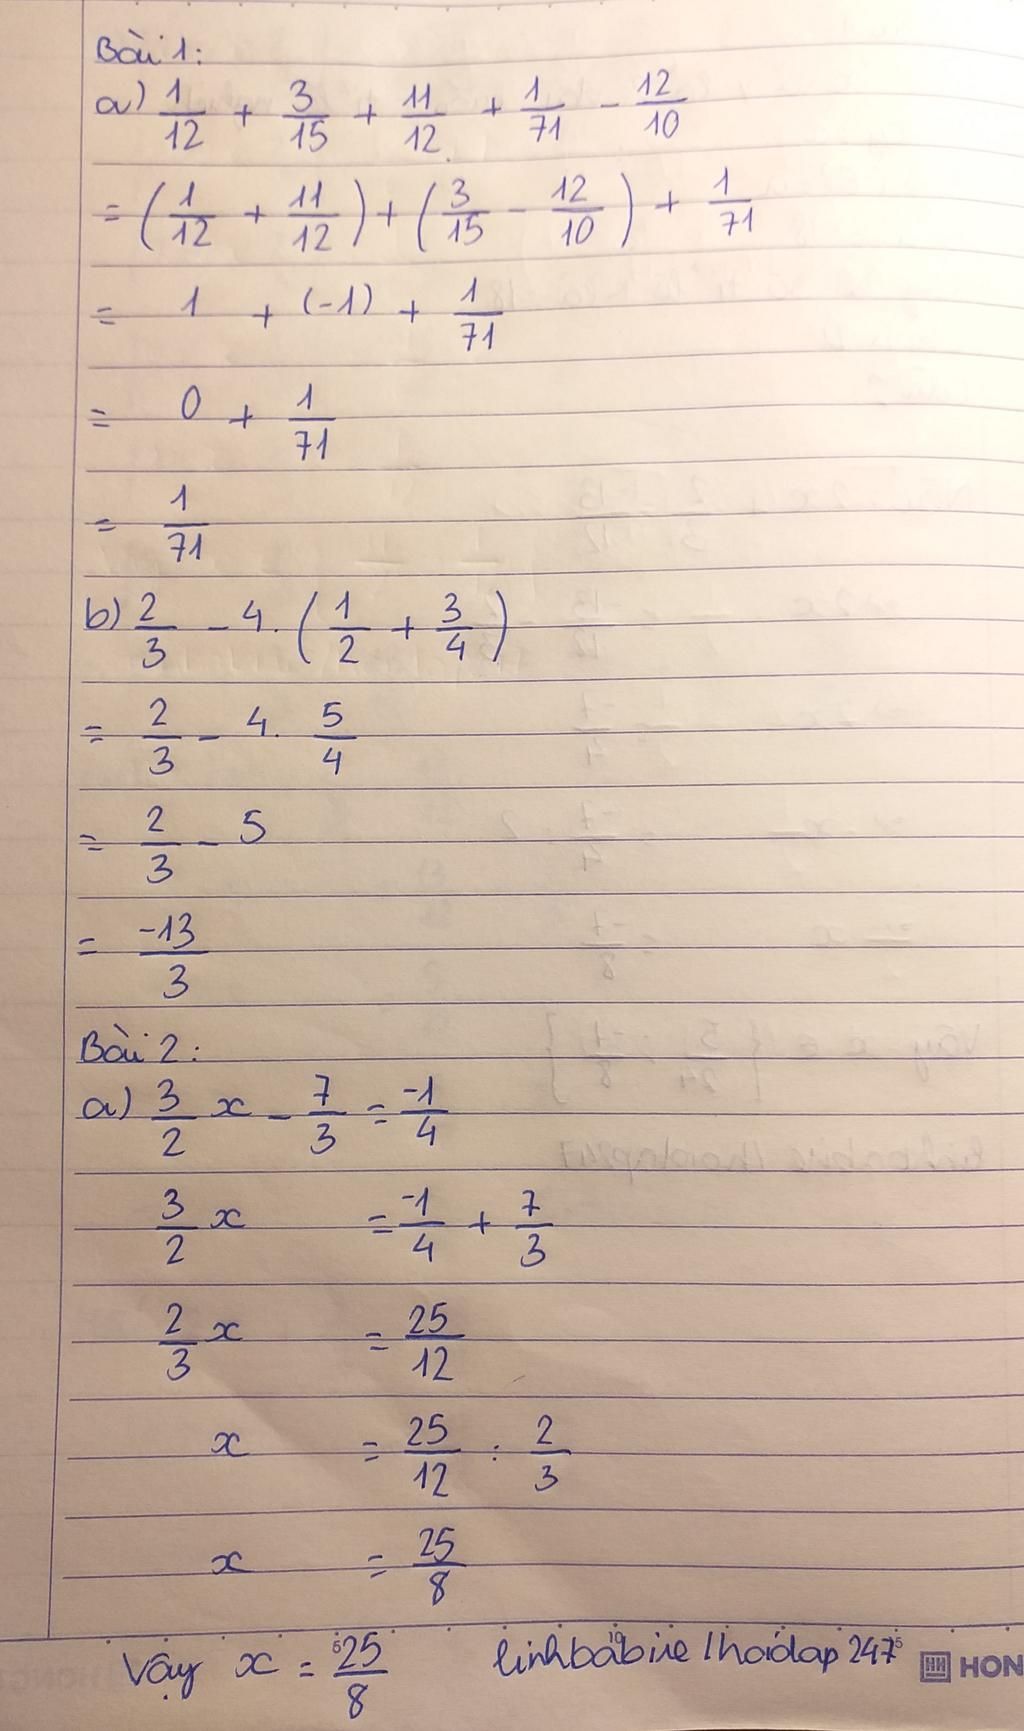 Bài 1:
a) 1/12 + 3/15 + 11/12 + 1/71 - 12/10
= (1/12 + 11/12) + (3/15 - 12/10) + 1/71
= 1 + (-1) + 1/71
= 0 + 1/71
= 1/71
b) 2/3 - 4. (1/2 + 3/4)
= 2/3 - 4. 5/4
= 2/3 - 5
= -13/3
Bài 2:
a) 3/2 x - 7/3 = -1/4
3/2 x = -1/4 + 7/3
2/3 x = 25/12
x = 25/12 : 2/3
x = 25/8
Vậy x = 25/8 linhbabire / hoidap 247 HON